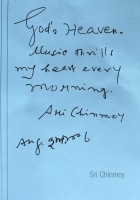 God's Heaven-
Music thrills
my heart every
morning.
Sri Chinmoy
Sri Chinmoy